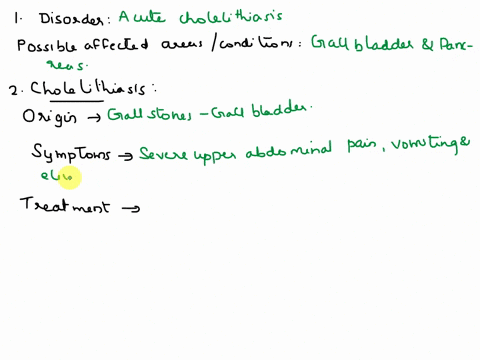 1. Disorder: Acute cholelithiasis
Possible affected areas/conditions: Gall bladder & Panc-
reas.
2. Cholelithiasis:
Origin → Gall stones - Gall bladder.
Symptoms → Severe upper abdominal pain, vomiting &
Treatment →